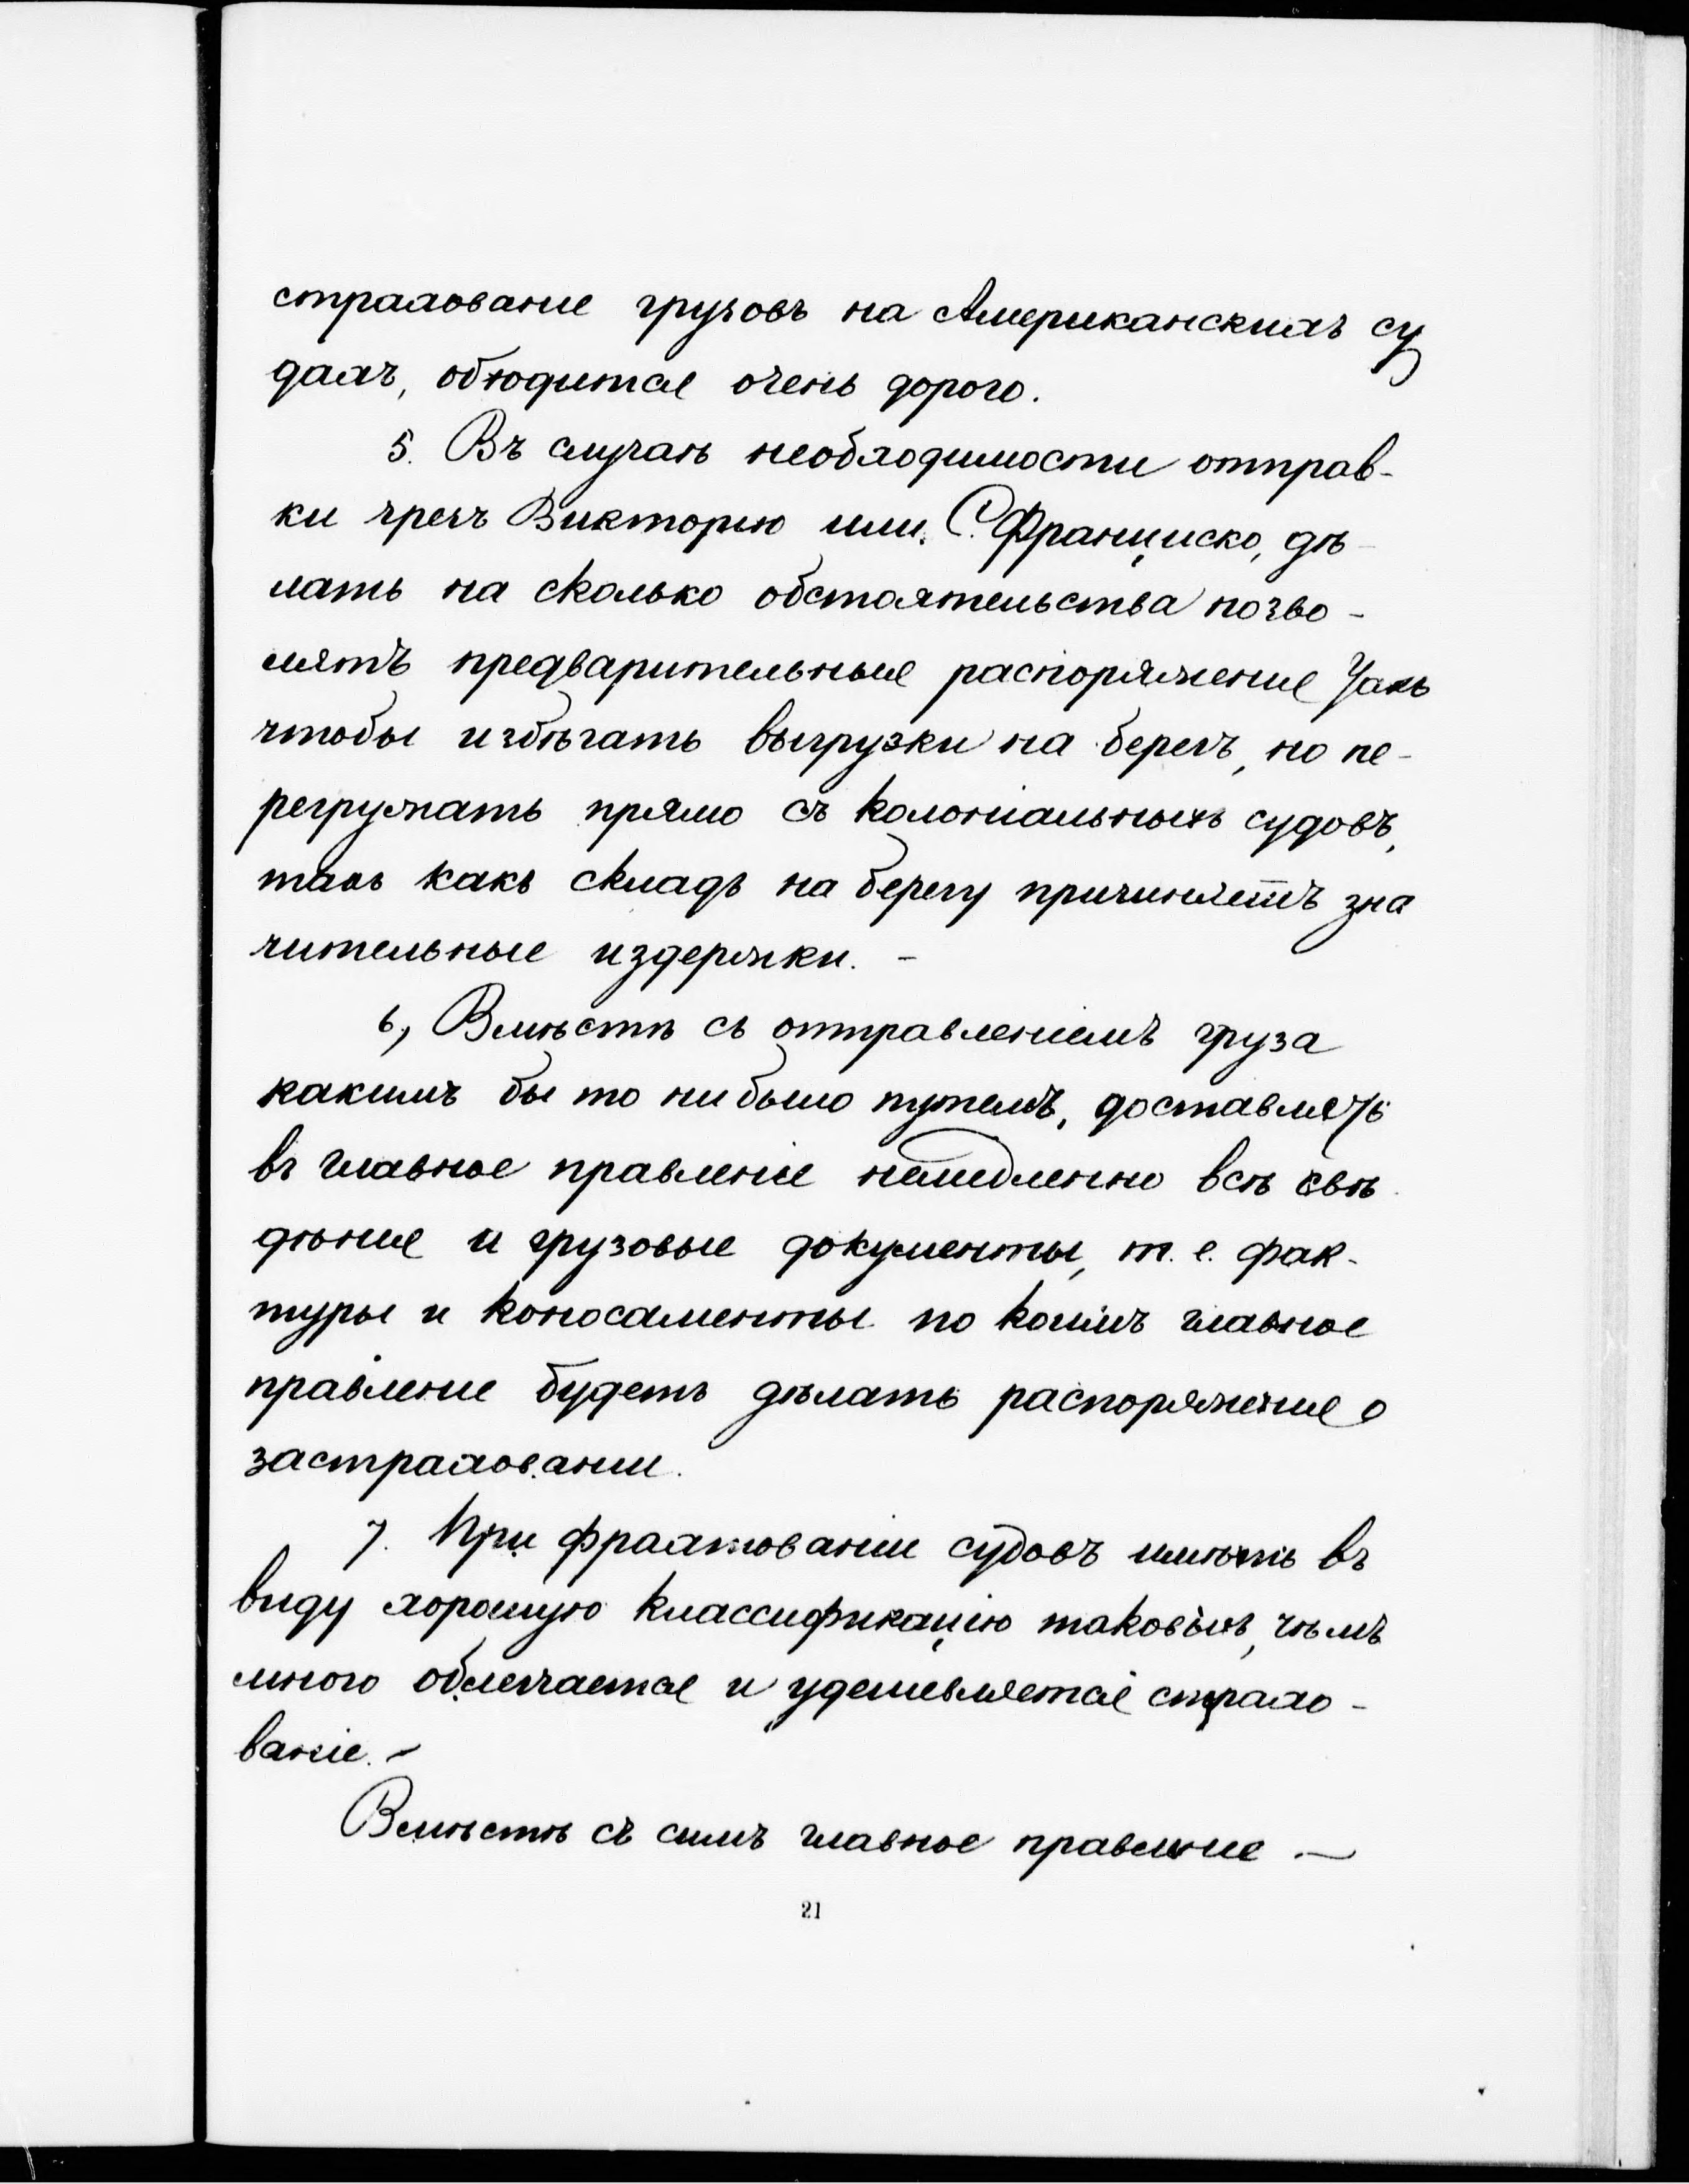 страхованіе грузовъ на Американскихъ су
дахъ, обходится очень дорого.
5. Въ случаѣ необходимости отправ-
ки чрезъ Викторію или С. Франциско, дѣ-
лать на сколько обстоятельства позво-
лятъ предварительныя распоряженія такъ
чтобы избѣгать выгрузки на берегъ, но пе-
регружать прямо съ колоніальныхъ судовъ,
такъ какъ складъ на берегу причиняетъ зна
чительные издержки. -
6, Вмѣстѣ съ отправленіемъ груза
какимъ бы то ни было путемъ, доставлять
въ главное правленіе немедленно всѣ свѣ
дѣнія и грузовые документы, т. е. фак-
туры и коносаменты по коимъ главное
правленіе будетъ дѣлать распоряженія о
застрахованіи.
7. При фрахтованіи судовъ имѣть въ
виду хорошую классификацію таковыхъ, чѣмъ
много облегчается и удешевляется страхо-
ваніе. -
Вмѣстѣ съ симъ главное правленіе -
21